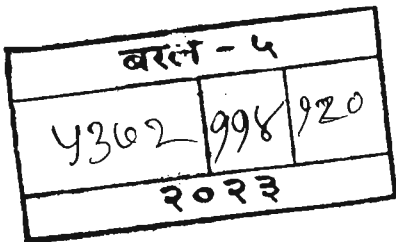 बरल - ५
५३७२ ११४ १२०
२०२३